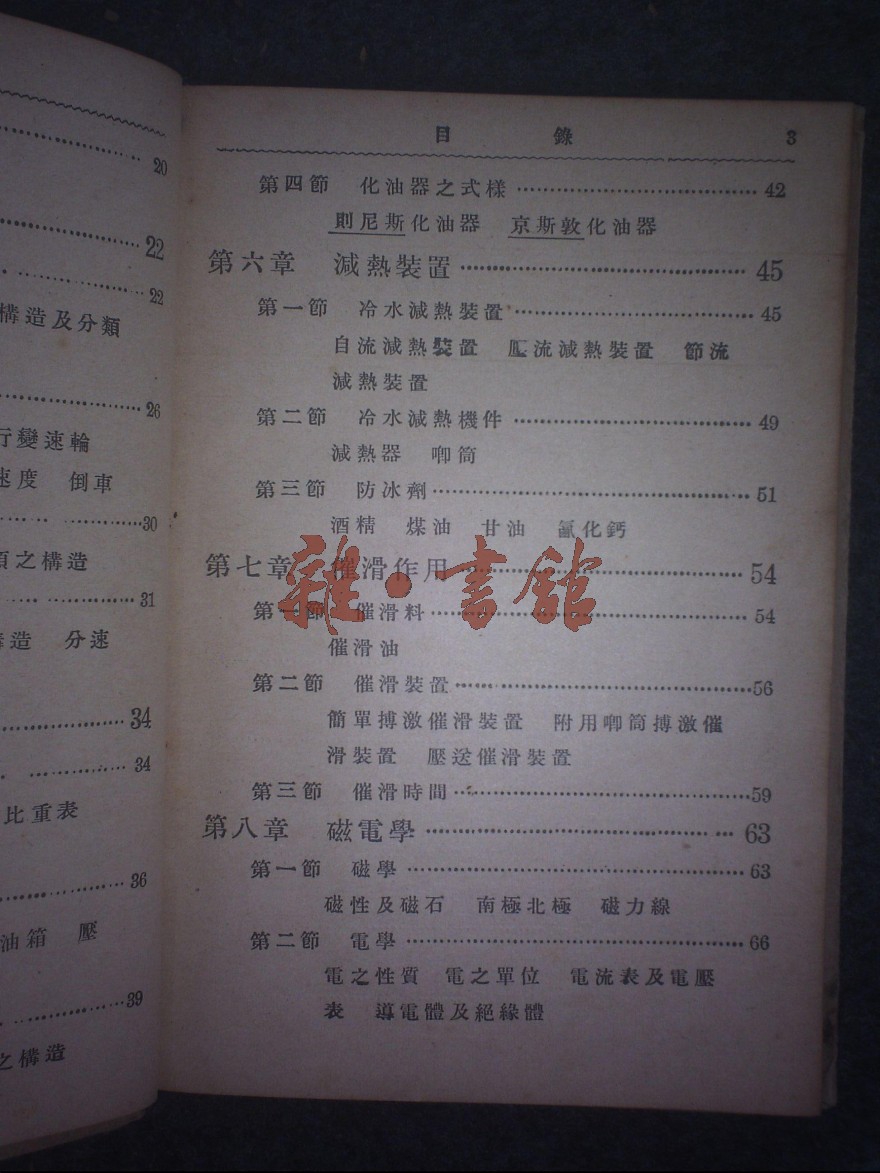 20
22
22
構造及分類
26
行變速輪
速度 倒車
30
頂之構造
31
構造 分速
34
34
比重表
36
油箱 壓
39
之構造
目錄 3
第四節 化油器之式樣 42
則尼斯化油器 京斯敦化油器
第六章 減熱裝置 45
第一節 冷水減熱裝置 45
自流減熱裝置 壓流減熱裝置 節流
減熱裝置
第二節 冷水減熱機件 49
減熱器 唧筒
第三節 防冰劑 51
酒精 煤油 甘油 氯化鈣
第七章 催滑作用 54
第一節 催滑料 54
催滑油
第二節 催滑裝置 56
簡單搏激催滑裝置 附用唧筒搏激催
滑裝置 壓送催滑裝置
第三節 催滑時間 59
第八章 磁電學 63
第一節 磁學 63
磁性及磁石 南極北極 磁力線
第二節 電學 66
電之性質 電之單位 電流表及電壓
表 導電體及絕緣體
雜·書館